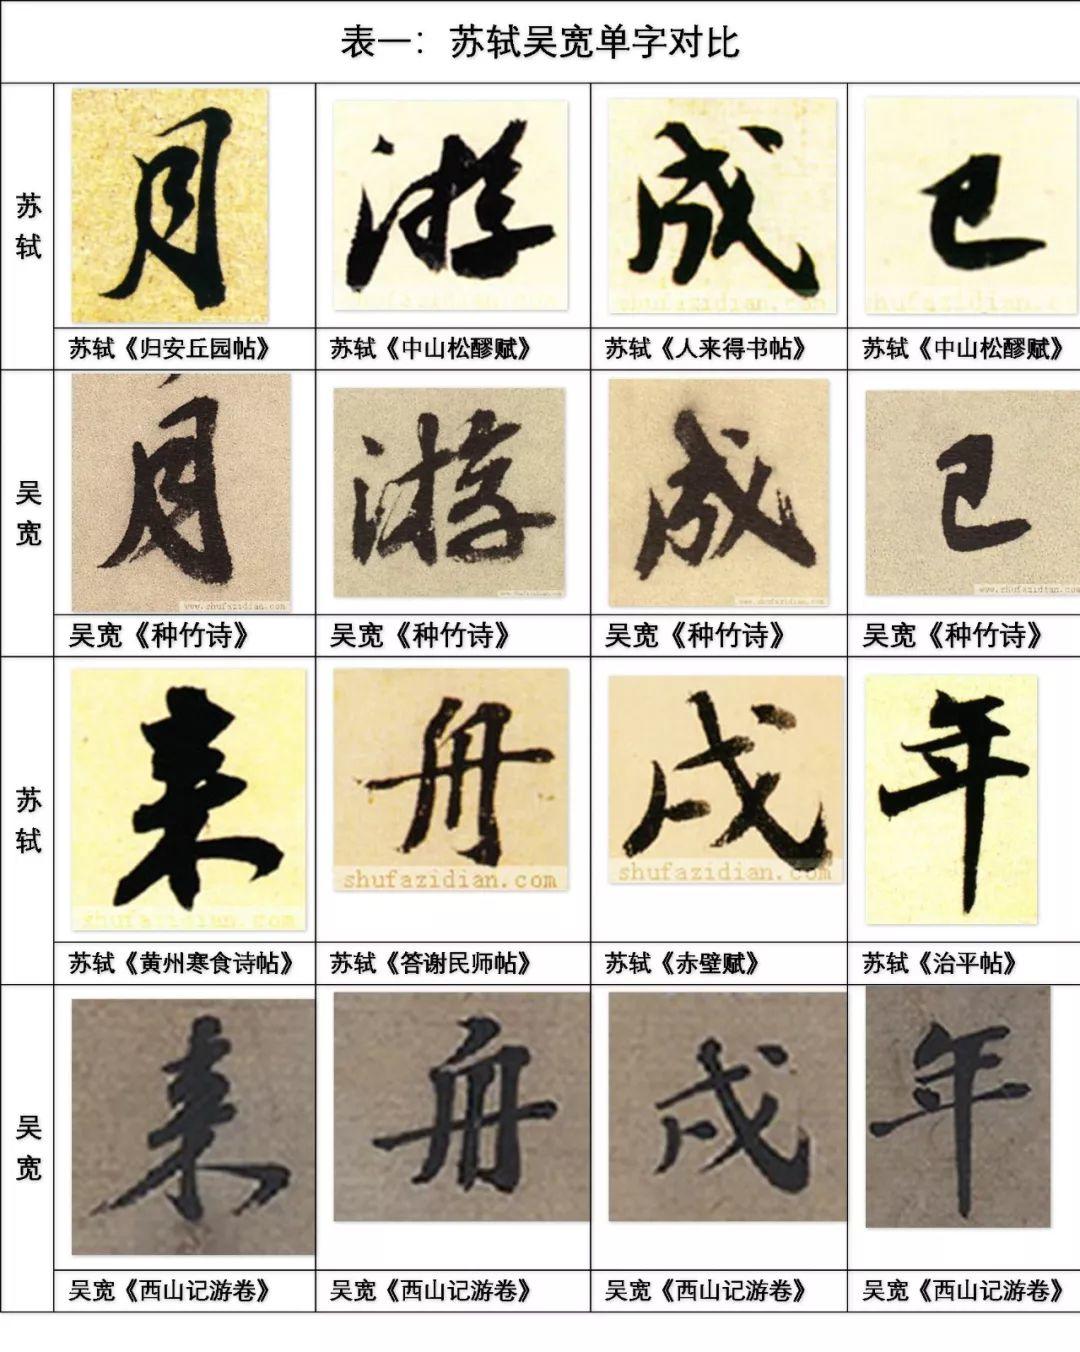 表一：苏轼吴宽单字对比
苏轼
月 游 成 已
shufazidian.com shufazidian.com
苏轼《归安丘园帖》 苏轼《中山松醪赋》 苏轼《人来得书帖》 苏轼《中山松醪赋》
吴宽
月 游 成 已
www.shufazidian.com www.shufazidian.com www.shufazidian.com www.shufazidian.com
吴宽《种竹诗》 吴宽《种竹诗》 吴宽《种竹诗》 吴宽《种竹诗》
苏轼
来 舟 戌 年
shufazidian.com shufazidian.com shufazidian.com
苏轼《黄州寒食诗帖》 苏轼《答谢民师帖》 苏轼《赤壁赋》 苏轼《治平帖》
吴宽
来 舟 戌 年
吴宽《西山记游卷》 吴宽《西山记游卷》 吴宽《西山记游卷》 吴宽《西山记游卷》